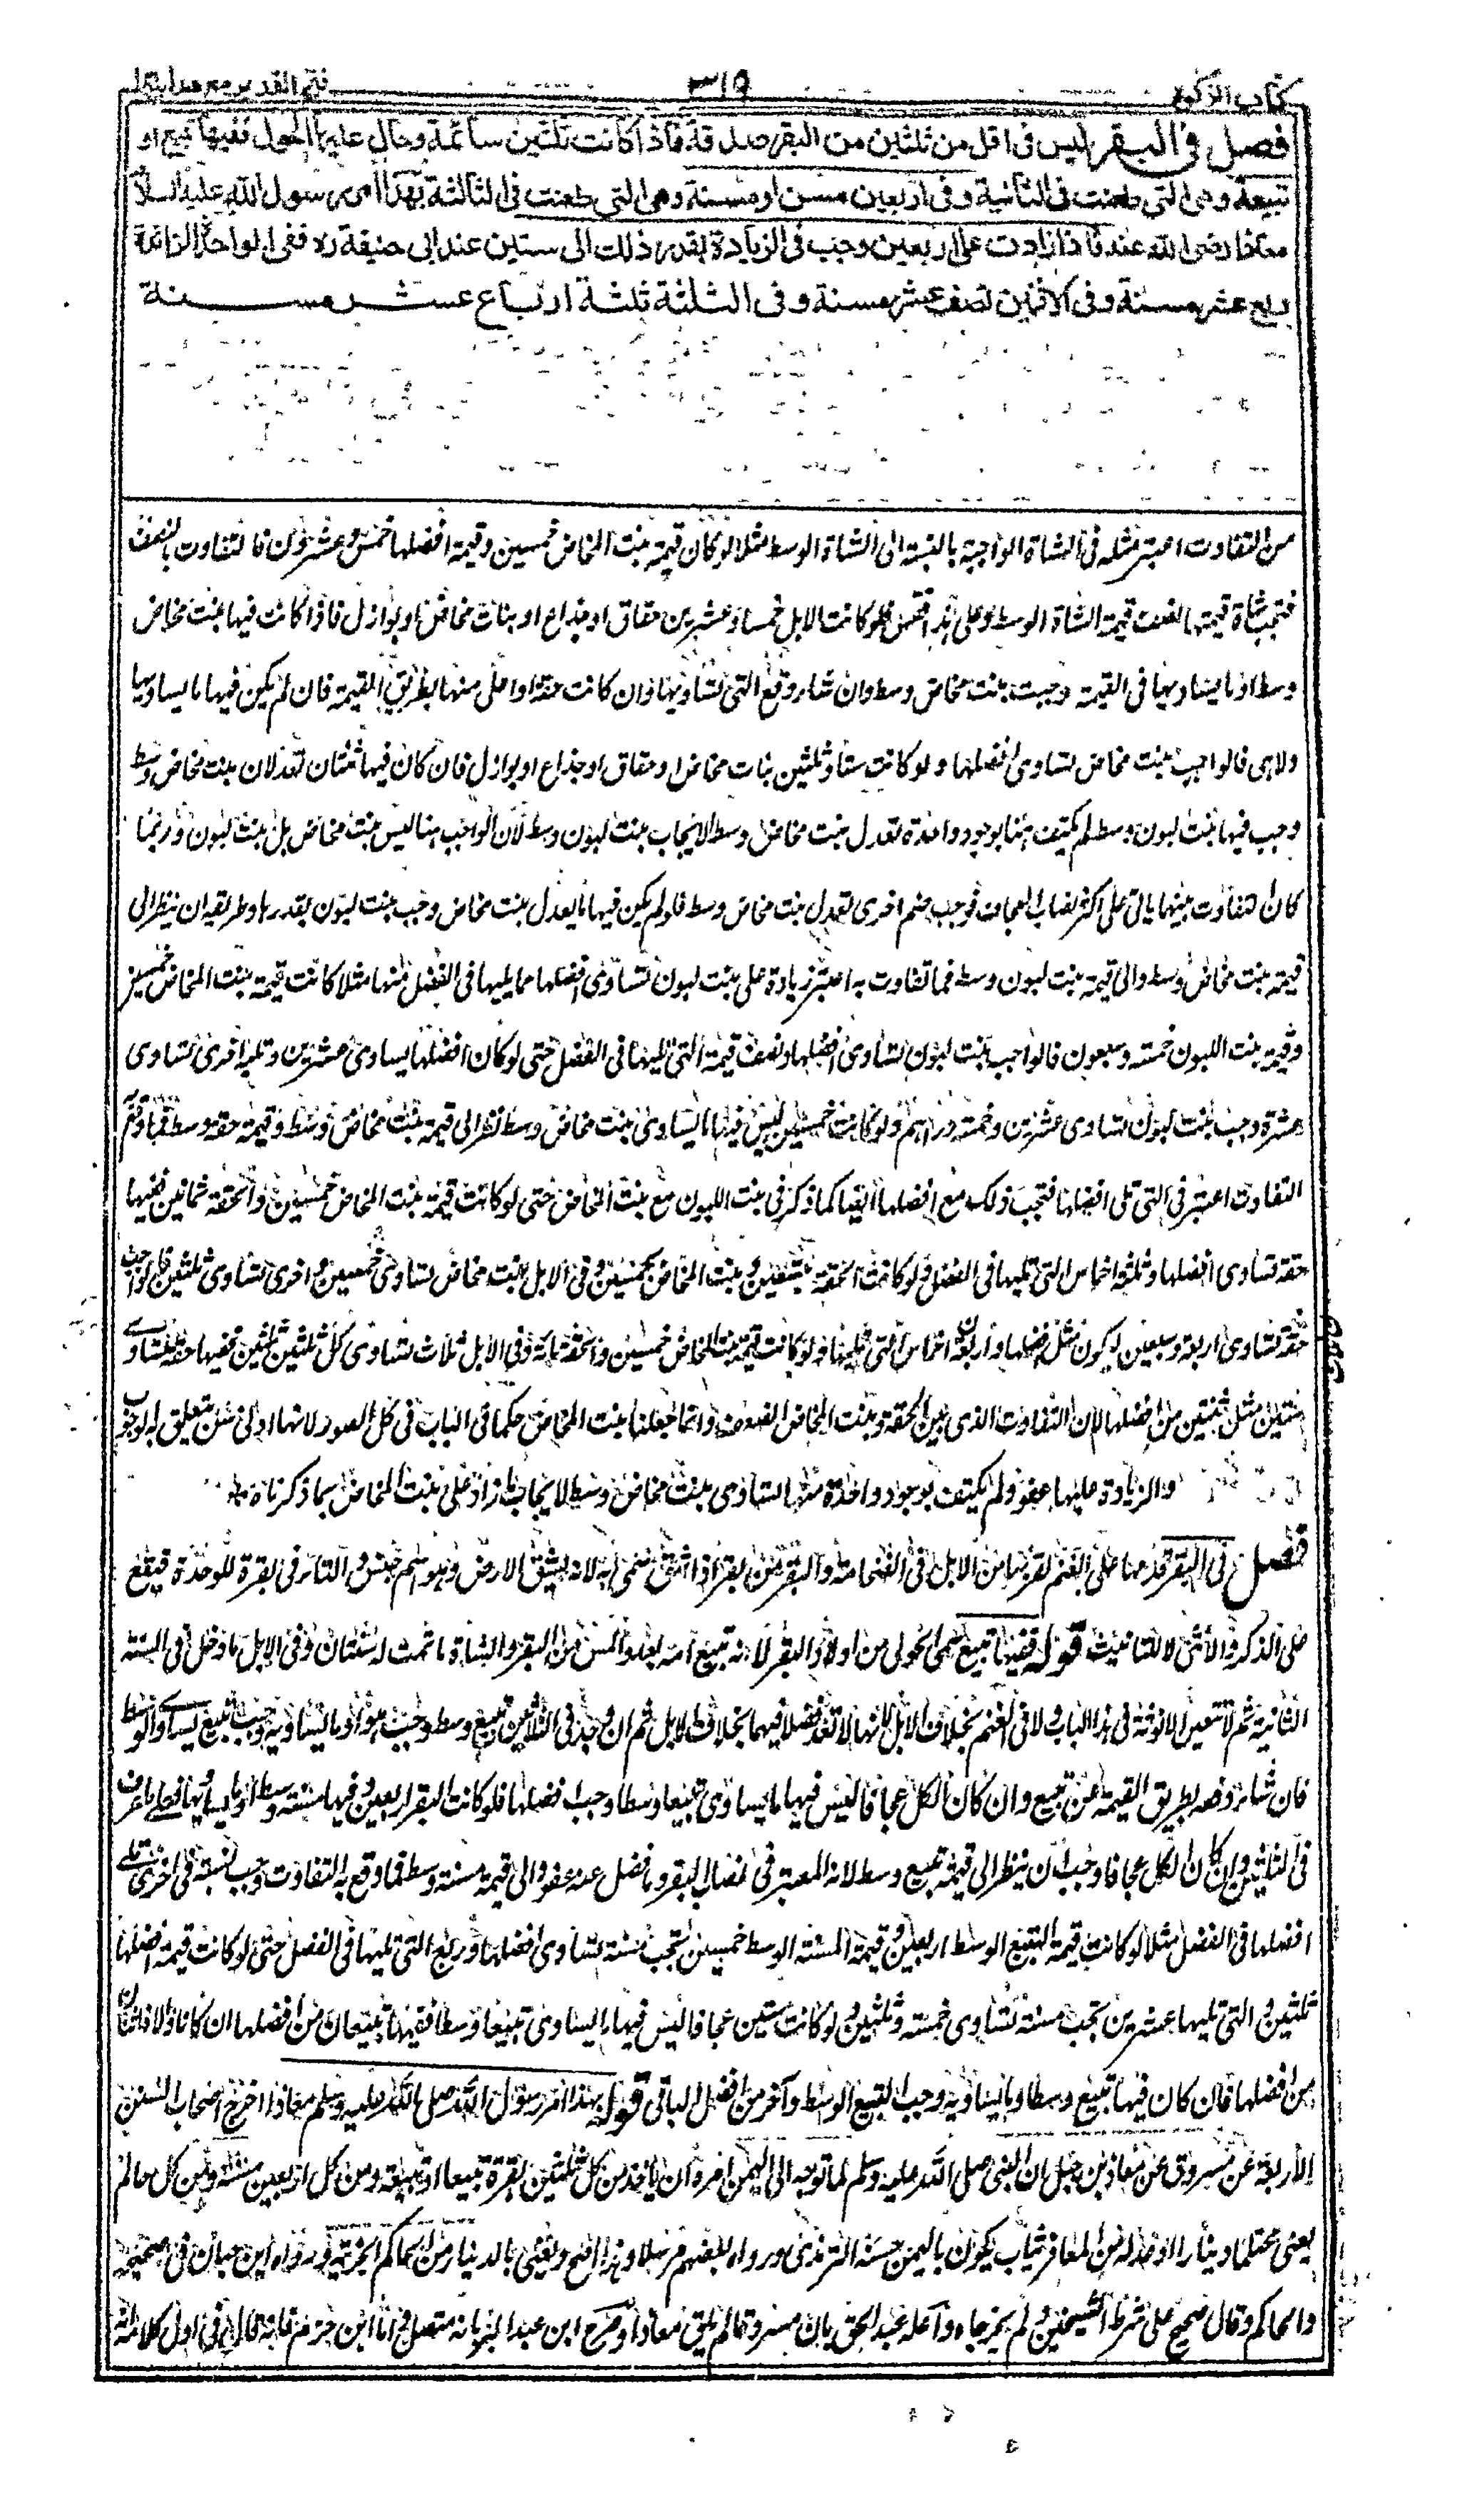 كتاب الزكوة
٣١٩
فتح القدير مع هدايه
فصل فى البقر ليس فى اقل من ثلثين من البقر صدقة فاذا كانت ثلثين سائمة وحال عليها الحول ففيها تبيع او
تبيعة وهى التى طعنت فى الثانية وفى اربعين مسن او مسنة وهى التى طعنت فى الثالثة بهذا امر رسول الله عليه السلام
معاذا رضى الله عنه فاذا زادت على اربعين وجب فى الزيادة بقدر ذلك الى ستين عند ابى حنيفة ره ففى الواحدة الزائدة
ربع عشر مسنة وفى الاثنين نصف عشر مسنة وفى الثلثة ثلثة ارباع عشر مسنة
من التفاوت اعتبر مثله فى الشاة الواجبة بالنسبة الى الشاة الوسط مثلا لو كان قيمة بنت المخاض خمسين وقيمة افضلها خمس وعشرون فالتفاوت بالنصف
فتجب شاة قيمتها نصف قيمة الشاة الوسط وعلى هذا فقس فلو كانت الابل خمسا وعشرين حقاق او جذاع او بنات مخاض او بوازل فاذا كانت فيها بنت مخاض
وسط او ما يساويها فى القيمة وجبت بنت مخاض وسط وان شاء دفع التى تساويها وان كانت حقة او اعلى منها بطريق القيمة فان لم يكن فيها ما يساويها
ولا هى فالواجب بنت مخاض تساوى افضلها ولو كانت ستا وثلثين بنات مخاض او حقاق او جذاع او بوازل فان كان فيها ثنتان تعدلان بنت مخاض وسط
وجب فيها بنت لبون وسط لم يكتف هنا بوجود واحدة تعدل بنت مخاض وسط لايجاب بنت لبون وسط لان الواجب هنا ليس بنت مخاض بل بنت لبون وربما
كان التفاوت بينهما ياتى على اكثر نصاب العجاف فوجب ضم اخرى تعدل بنت مخاض وسط فلو لم يكن فيها ما يعدل بنت مخاض وجب بنت لبون بقدرها وطريقه ان ينظر الى
قيمة بنت مخاض وسط والى قيمة بنت لبون وسط فما تفاوت به اعتبر زيادة على بنت لبون تساوى افضلها مما يليها فى الفضل منها مثلا كانت قيمة بنت المخاض خمسين
وقيمة بنت اللبون خمسة وسبعون فالواجب بنت لبون تساوى افضلها ونصف قيمة التى تليها فى الفضل حتى لو كان افضلها يساوى عشرين وتليه اخرى تساوى
عشرة وجب بنت لبون تساوى عشرين وخمسة دراهم ولو كانت خمسين ليس فيها ما يساوى بنت مخاض وسط نظر الى قيمة بنت مخاض وسط وقيمة حقة وسط فما وقع
التفاوت اعتبر فى التى تلى افضلها فتجب ذلك مع افضلها ايضا كما ذكر فى بنت اللبون مع بنت المخاض حتى لو كانت قيمة بنت المخاض خمسين والحقة ثمانين ففيها
حقة تساوى افضلها وثلثة اخماس التى تليها فى الفضل ولو كانت الحقة بتسعين وبنت المخاض بخمسين وفى الابل بنت مخاض تساوى خمسين واخرى تساوى ثلثين فالواجب
حقة تساوى اربعة وسبعين ليكون مثل افضلها واربعة اخماس التى تليها ولو كانت قيمة بنت المخاض خمسين والحقة مائة وفى الابل ثلاث تساوى كل ثلثين ثلثين ففيها حقة تساوى
ستين مثل ثنتين من افضلها لان التفاوت الذى بين الحقة وبنت المخاض الضعف وانما جعلنا بنت المخاض حكما فى الباب فى كل الصور لانها ادنى سن يتعلق به الوجوب
والزيادة عليها عفو ولم يكتف بوجود واحدة منها تساوى بنت مخاض وسط لايجاب ما زاد على بنت المخاض بما ذكرناه
فصل فى البقر قدمها على الغنم لقربها من الابل فى الضخامة والبقر من بقر اذا شق سمى به لانه يشق الارض وهو اسم جنس والتاء فى بقرة للوحدة فيقع
على الذكر والانثى لا للتانيث قوله ففيها تبيع سمى الحولى من اولاد البقر لانه تبيع امه بعد والمسن من البقر والشاة ما تمت له سنتان وفى الابل ما دخل فى السنة
الثانية ثم لا تتعين الانوثة فى هذا الباب ولا فى الغنم بخلاف الابل لانها لا تعد فضلا فيهما بخلاف الابل ثم ان وجد فى الثلاثين تبيع وسط وجب هو او ما يساويه وجب تبيع يساوى الوسط
فان شاء دفعه بطريق القيمة عن تبيع وان كان الكل عجافا ليس فيها ما يساوى تبيعا وسطا وجب افضلها فلو كانت البقر اربعين وفيها مسنة وسط او ما يساويها فعلى ما عرف
فى الثلثين وان كان الكل عجافا وجب ان ينظر الى قيمة تبيع وسط لانه المعتبر فى نصاب البقر وما فضل عنه عفو والى قيمة مسنة وسط فما وقع به التفاوت وجب نسبته فى اخرى تلى
افضلها فى الفضل مثلا لو كانت قيمة التبيع الوسط اربعين وقيمة المسنة الوسط خمسين تجب مسنة تساوى افضلها وربع التى تليها فى الفضل حتى لو كانت قيمة افضلها
ثلثين والتى تليها عشرين تجب مسنة تساوى خمسة وثلثين ولو كانت ستين عجافا ليس فيها ما يساوى تبيعا وسطا ففيها تبيعان من افضلها ان كانا والا فاثنان
من افضلها فان كان فيها تبيع وسط او ما يساويه وجب التبيع الوسط وآخر من افضل الباقى قوله بهذا امر رسول الله صلى الله عليه وسلم معاذا اخرج اصحاب السنن
الاربعة عن مسروق عن معاذ بن جبل ان النبى صلى الله عليه وسلم لما توجه الى اليمن امره ان ياخذ من كل ثلثين بقرة تبيعا او تبيعة ومن كل اربعين مسنة ومن كل حالم
يعنى محتلما دينارا او عدله من المعافر ثياب تكون باليمن حسنه الترمذى ورواه بعضهم مرسلا وهذا اصح ويعنى بالدينار من الحالم الجزية ورواه ابن حبان فى صحيحه
والحاكم وقال صحيح على شرط الشيخين ولم يخرجاه واعله عبد الحق بان مسروقا لم يلق معاذا وصرح ابن عبد البر بانه متصل واما ابن حزم فانه قال فى اول كلامه انه